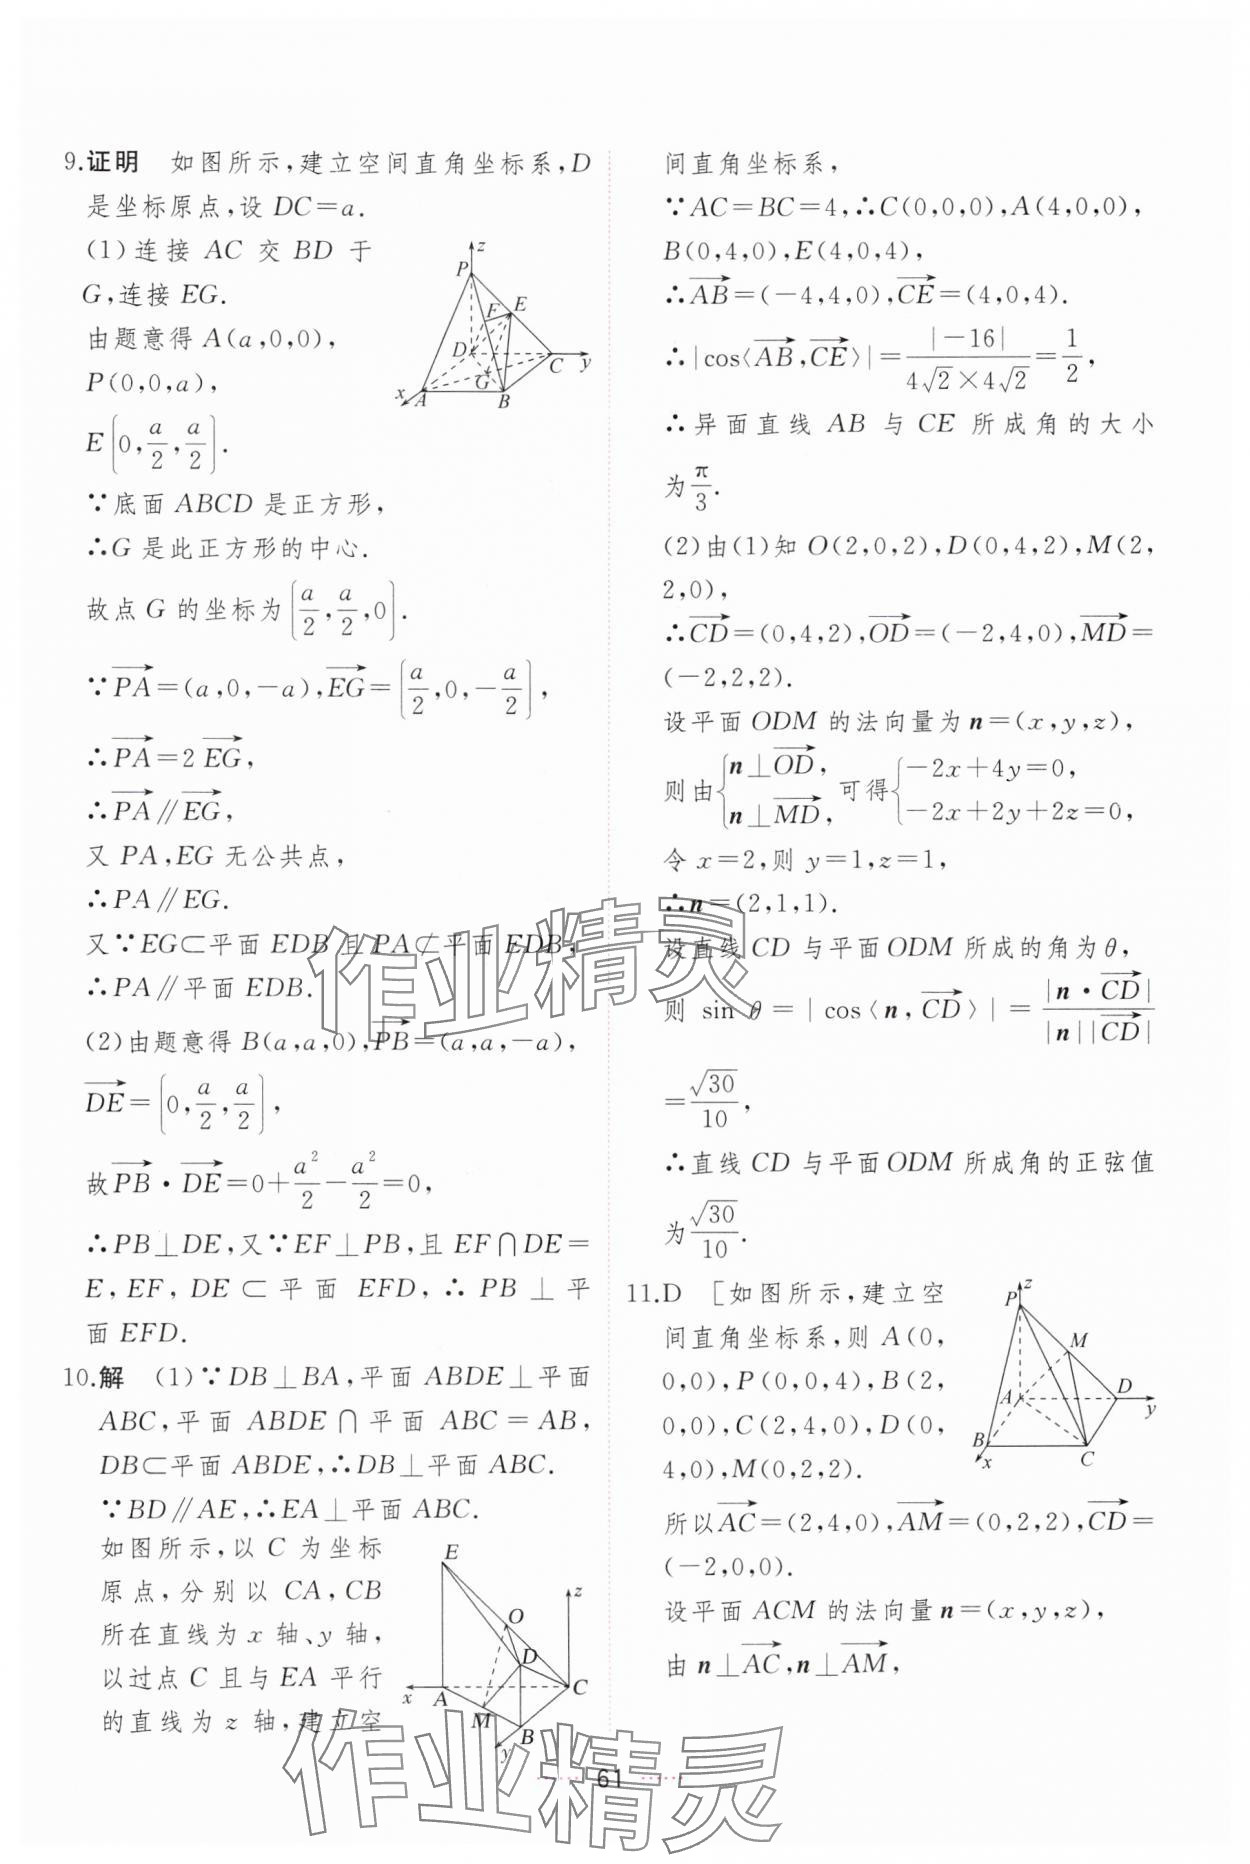 9.证明　如图所示,建立空间直角坐标系,D
是坐标原点,设 DC=a.
(1)连接 AC 交 BD 于
G,连接 EG.
由题意得 A(a,0,0),
P(0,0,a),
E(0,a/2,a/2).
∵底面 ABCD 是正方形,
∴G 是此正方形的中心.
故点 G 的坐标为(a/2,a/2,0).
∵PA→=(a,0,-a),EG→=(a/2,0,-a/2),
∴PA→=2 EG→,
∴PA→∥EG→,
又 PA,EG 无公共点,
∴PA∥EG.
又∵EG⊂平面 EDB 且 PA⊄平面 EDB,
∴PA∥平面 EDB.
(2)由题意得 B(a,a,0),PB→=(a,a,-a),
DE→=(0,a/2,a/2),
故PB→·DE→=0+a²/2-a²/2=0,
∴PB⊥DE,又∵EF⊥PB,且 EF∩DE=
E,EF,DE⊂平面 EFD,∴PB⊥平
面 EFD.
z
P
F
E
D
C
y
G
x
A
B
10.解　(1)∵DB⊥BA,平面 ABDE⊥平面
ABC,平面 ABDE∩平面 ABC=AB,
DB⊂平面 ABDE,∴DB⊥平面 ABC.
∵BD∥AE,∴EA⊥平面 ABC.
如图所示,以 C 为坐标
原点,分别以 CA,CB
所在直线为 x 轴、y 轴,
以过点 C 且与 EA 平行
的直线为 z 轴,建立空
E
z
O
D
x
A
C
M
B
y
间直角坐标系,
∵AC=BC=4,∴C(0,0,0),A(4,0,0),
B(0,4,0),E(4,0,4),
∴AB→=(-4,4,0),CE→=(4,0,4).
∴|cos⟨AB→,CE→⟩|=|-16|/(4√2×4√2)=1/2,
∴异面直线 AB 与 CE 所成角的大小
为π/3.
(2)由(1)知 O(2,0,2),D(0,4,2),M(2,
2,0),
∴CD→=(0,4,2),OD→=(-2,4,0),MD→=
(-2,2,2).
设平面 ODM 的法向量为 n=(x,y,z),
则由{n⊥OD→, n⊥MD→, 可得{-2x+4y=0, -2x+2y+2z=0,
令 x=2,则 y=1,z=1,
∴n=(2,1,1).
设直线 CD 与平面 ODM 所成的角为 θ,
则 sin θ=|cos⟨n,CD→⟩|=|n·CD→|/|n||CD→|
=√30/10,
∴直线 CD 与平面 ODM 所成角的正弦值
为√30/10.
11.D　[如图所示,建立空
间直角坐标系,则 A(0,
0,0),P(0,0,4),B(2,
0,0),C(2,4,0),D(0,
4,0),M(0,2,2).
所以AC→=(2,4,0),AM→=(0,2,2),CD→=
(-2,0,0).
设平面 ACM 的法向量 n=(x,y,z),
由 n⊥AC→,n⊥AM→,
z
P
M
A
D
y
B
x
C
作业精灵
作业精灵
61